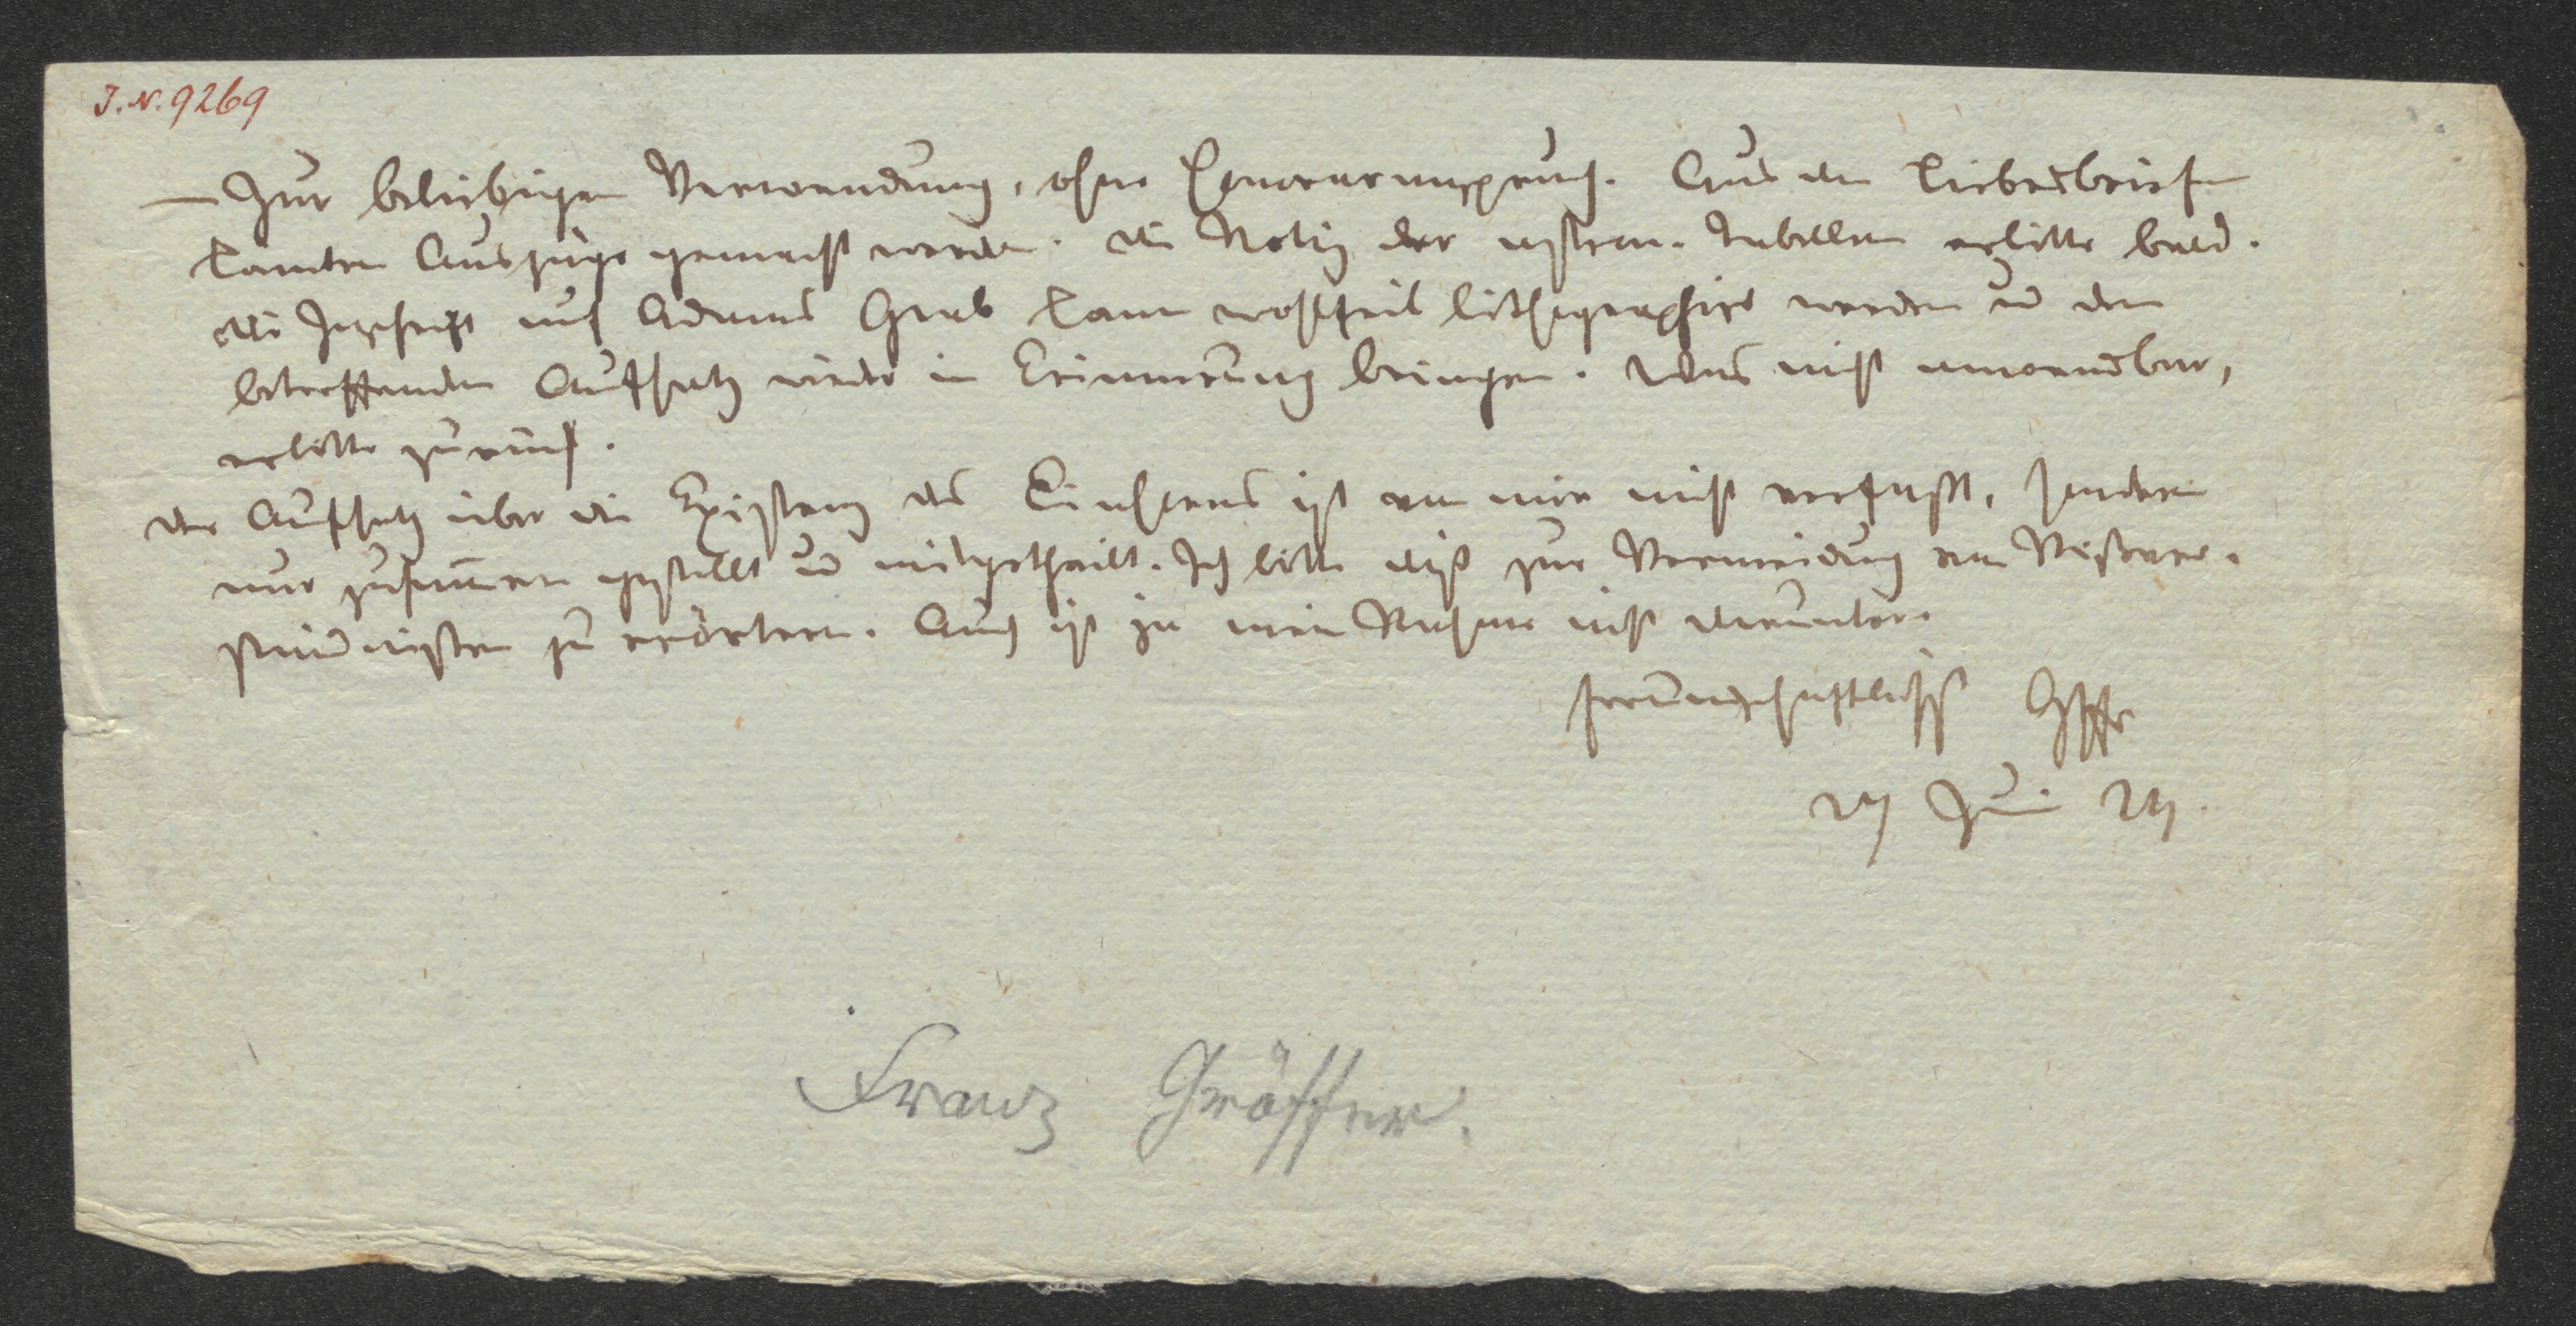 I. N. 9269
— Zur beliebigen Verwendung, ohne Honoraranspruch. Aus den Liebesbriefen
könnten Auszüge gemacht werden. Die Notiz der astron. Tabellen erbitte bald.
Die Inschrift auf Adams Grab kann wohlfeil lithographirt werden u den
betreffenden Aufsatz wieder in Erinnerung bringen. Was nicht anwendbar,
erbitte zurück.
Der Aufsatz über die Existenz des Einhorns ist von mir nicht verfaßt, sondern
nur zusammen gestellt u mitgetheilt. Ich bitte diß zur Vermeidung von Mißver-
ständnißen zu erörtern. Auch ist ja mein Nahme nicht darunter.
freundschaftlichst Gffr
27 Juni
Franz Gräffer.